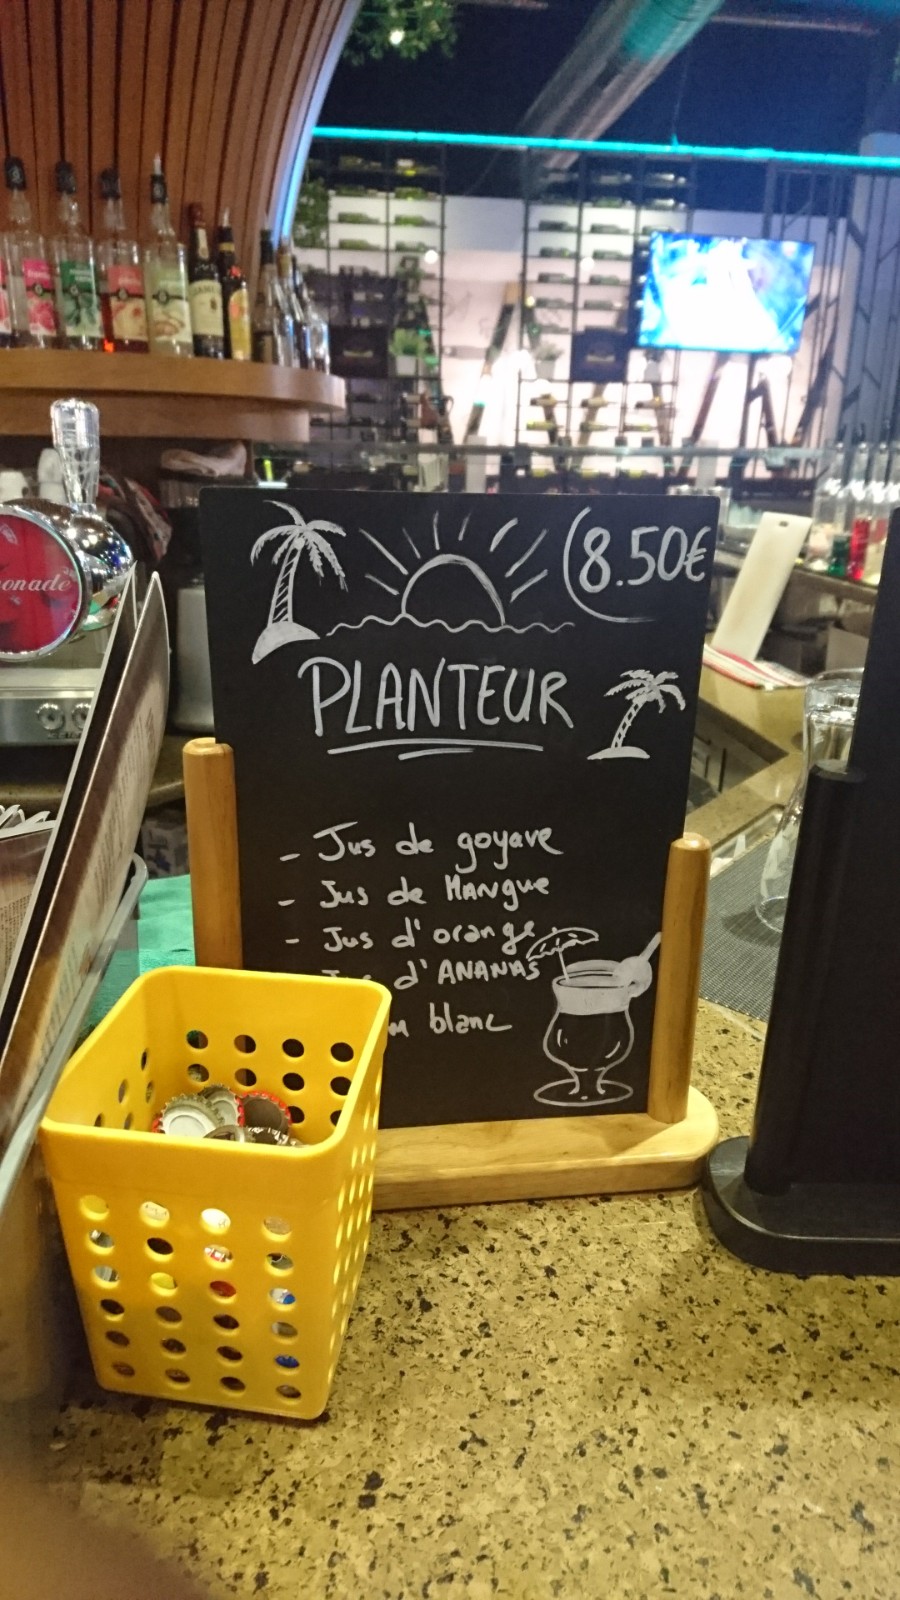 8.50€
PLANTEUR
- Jus de goyave
- Jus de Mangue
- Jus d'orange
d'ANANAS
blanc